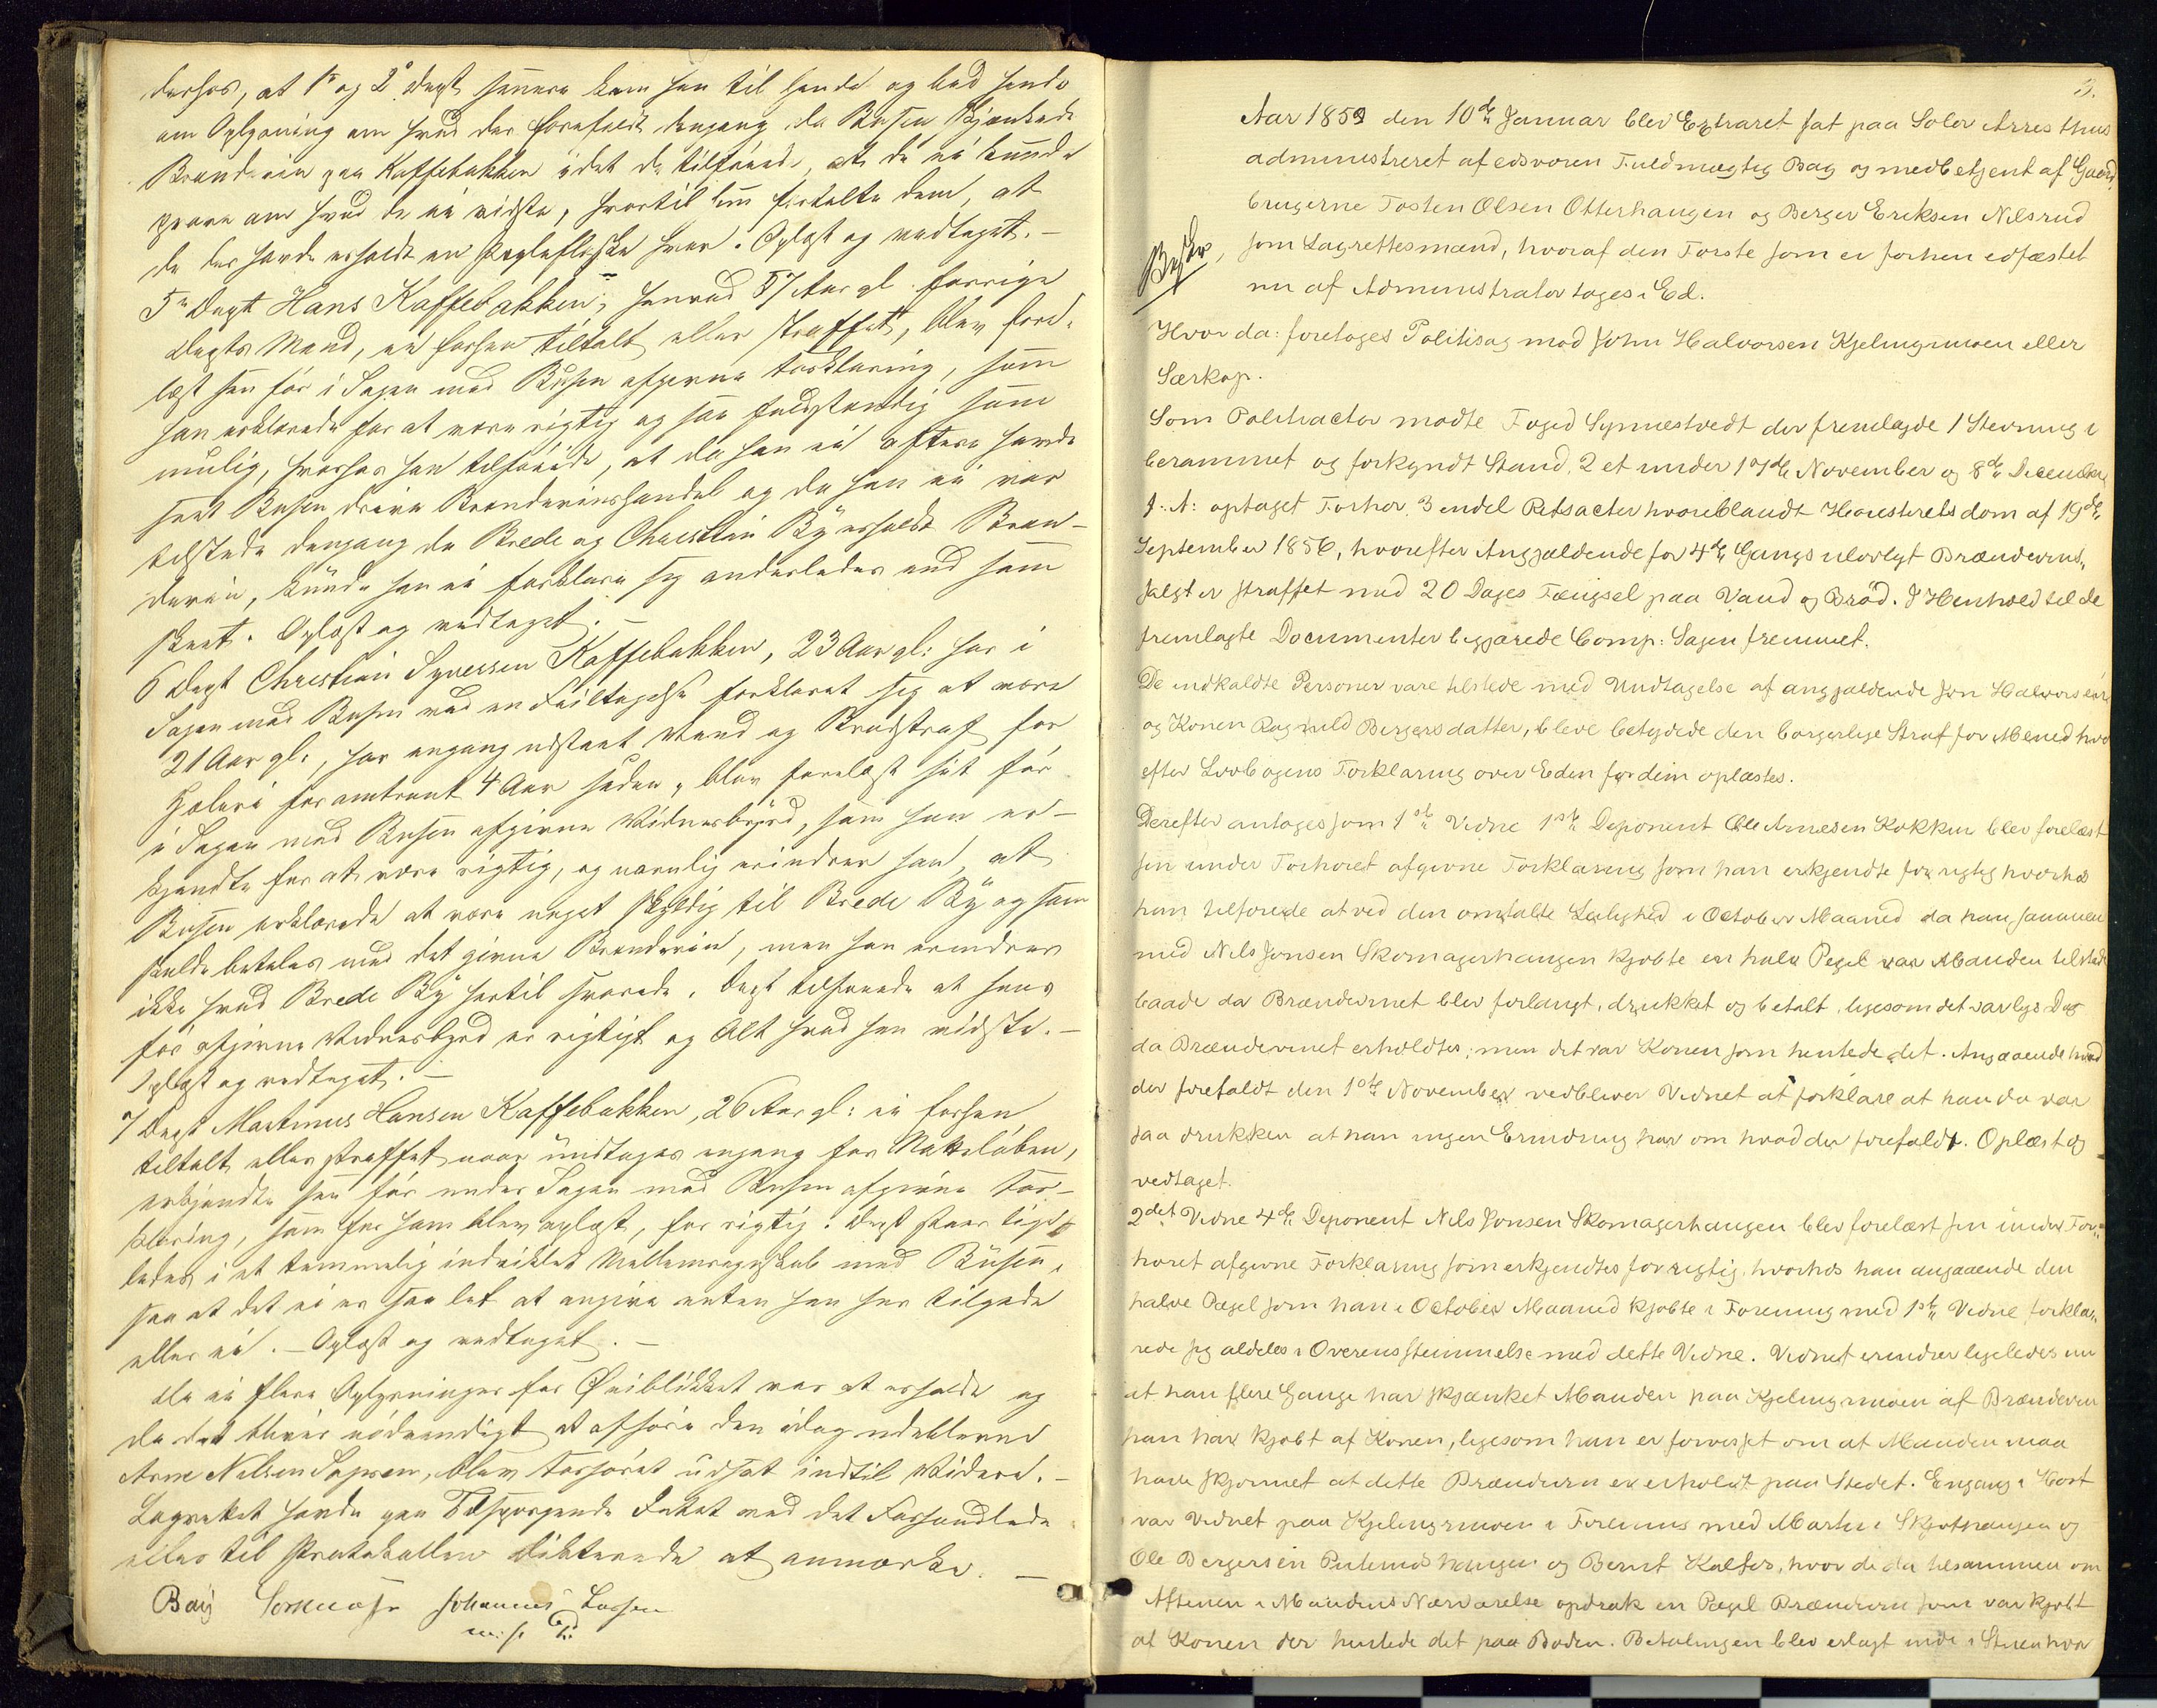 derhos, at 1ste og 2de Dept senere kom hen til hende og bad hende
om Oplysning om hvad der forefaldt dengang da Busen skjænkede
Brændeviin paa Kaffebakken idet de tilføiede, at de ei kunde
greie om hvad de ei vidste, hvortil hun fortalte dem, at
de der havde erholdt en Pægleflaske hver. Oplæst og vedtaget. —
5te Dept Hans Kaffebakken, henved 57 Aar gl. forrige
Depts Mand, ei forhen tiltalt eller straffet, blev fore-
læst sin før i Sagen mod Busen afgivne Forklaring, som
han erklærede for at være rigtig og saa fuldstændig som
mulig, hvorhos han tilføiede, at da han ei oftere havde
seet Busen drive Brændeviinshandel og da han ei var
tilstede dengang da Brede og Christian By erholdt Bræn-
deviin, kunde han ei forklare sig anderledes end som
skeet. Oplæst og vedtaget. —
6 Dept Christian Syversen Kaffebakken, 23 Aar gl: har i
Sagen mod Busen ved en Feiltagelse forklaret sig at være
21 Aar gl:, har engang udstaaet Vand og Brødstraf for
Hæleri for omtrent 4 Aar siden, blev forelæst sit før
i Sagen mod Busen afgivne Vidnesbyrd, som han er-
kjendte for at være rigtig, og navnlig erindrer han, at
Busen erklærede at være noget skyldig til Brede By og som
skulde betales med det givne Brændeviin, men han erindrer
ikke hvad Brede By hertil svarede. Dept tilføiede at hans
før afgivne Vidnesbyrd er rigtigt og Alt hvad han vidste. —
Oplæst og vedtaget. —
7 Dept Martinus Hansen Kaffebakken, 26 Aar gl: ei forhen
tiltalt eller straffet naar undtages engang for Natteløben,
erkjendte sin før under Sagen mod Busen afgivne For-
klaring, som for ham blev oplæst, for rigtig. Dept staar lige-
ledes i et temmelig indviklet Mellemregnskab med Busen,
saa at det ei er saa let at angive enten han har tilgode
eller ei. — Oplæst og vedtaget. —
Da ei flere Oplysninger for Øieblikket var at erholde og
da det bliver nødvendigt at afhøre den idag udeblevne
Arne Nilsen Sapsen, blev Forhøret udsat indtil Videre. —
Lagrettet havde paa Tilspørgende Intet ved det Forhandlede
eller til Protokollen dikterede at anmærke. —
Bay Johannes Larsen
m. f. P.
3.
Aar 1859 den 10de Januar blev Extraret sat paa Soløer Arresthus
administreret af edsvoren Fuldmægtig Bay og medbetjent af Gaard„
brugerne Tosten Olsen Otterhaugen og Berger Eriksen Nilsrud
som Lagrettesmænd, hvoraf den Første som ei forhen edfæstet
nu af Administrator toges i Ed.
Hvor da: foretoges Politisag mod John Halvorsen Kjelingmoen eller
Særkop.
Som Politiactor mødte Foged Synnestvedt der fremlagde 1 Stevning i
berammet og forkyndt Stand, 2 et under 17de November og 8de December
f. A: optaget Forhør, 3 endel Retsacter hvoriblandt Høiesteretsdom af 19de
September 1856, hvorefter Angjældende for 4de Gangs ulovligt Brændeviins„
salg er straffet med 20 Dages Fængsel paa Vand og Brød. I Henhold til de
fremlagte Documenter begjærede Comp: Sagen fremmet.
De indkaldte Personer vare tilstede med Undtagelse af angjældende Jon Halvorsen
og Konen Ragnild Bergersdatter, bleve betydede den borgerlige Straf for Meened hvor
efter Lovbogens Forklaring over Eden for dem oplæstes.
Derefter antoges som 1ste Vidne 1ste Deponent Ole Arnesen Kokken blev forelæst
sin under Forhøret afgivne Forklaring som han erkjendte for rigtig hvorhos
han tilføiede at ved den omtalte Leilighed i October Maaned da han sammen
med Nils Jonsen Skomagerhaugen kjøbte en halv Pegel var Manden tilstede
baade da Brændevinet blev forlangt, drukket og betalt, ligesom det var lys Dag
da Brændevinet erholdtes; men det var Konen som hentede det. Angaaende hvad
der forefaldt den 1ste November vedbliver Vidnet at forklare at han da var
saa drukken at han ingen Erindring har om hvad der forefaldt. Oplæst og
vedtaget.
2det Vidne 4de Deponent Nils Jonsen Skomagerhaugen blev forelæst sin under For„
høret afgivne Forklaring som erkjendtes for rigtig, hvorhos han angaaende den
halve Pægel som han i October Maaned kjøbte i Forening med 1ste Vidne forkla„
rede sig aldeles i Overensstemmelse med dette Vidne. Vidnet erindrer ligeledes nu
at han flere Gange har skjænket Manden paa Kjelingmoen af Brændeviin
han har kjøbt af Konen, ligesom han er forvisset om at Manden maa
have skjønnet at dette Brændeviin er erholdt paa Stedet. Engang i Høst
var Vidnet paa Kjelingmoen i Forening med Martin i Skjothaugen og
Ole Bergersen haugen og Bernt Kalfos, hvor de da tilsammen om
Aftenen i Mandens Nærværelse opdrak en Pægel Brændeviin som var kjøbt
af Konen der hentede det paa Boden. Betalingen blev erlagt inde i Stuen hvor